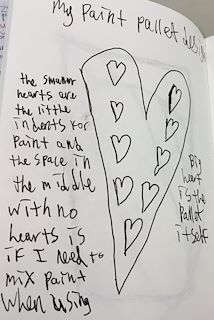 my paint pallet
the smaller
hearts are
the little
indents for
paint and
the space in
the middle
with no
hearts is
if I need to
mix paint
when using
Big
heart
is the
pallet
itself